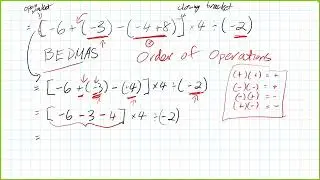 open bracket closing bracket
= [-6 + (-3) - (-4+8)] × 4 ÷ (-2)
BEDMAS Order of Operations
= [-6 + (-3) - (4)] × 4 ÷ (-2)
= [-6 - 3 - 4] × 4 ÷ (-2)
=
(+)(+) = +
(-)(-) = +
(-)(+) = -
(+)(-) = -